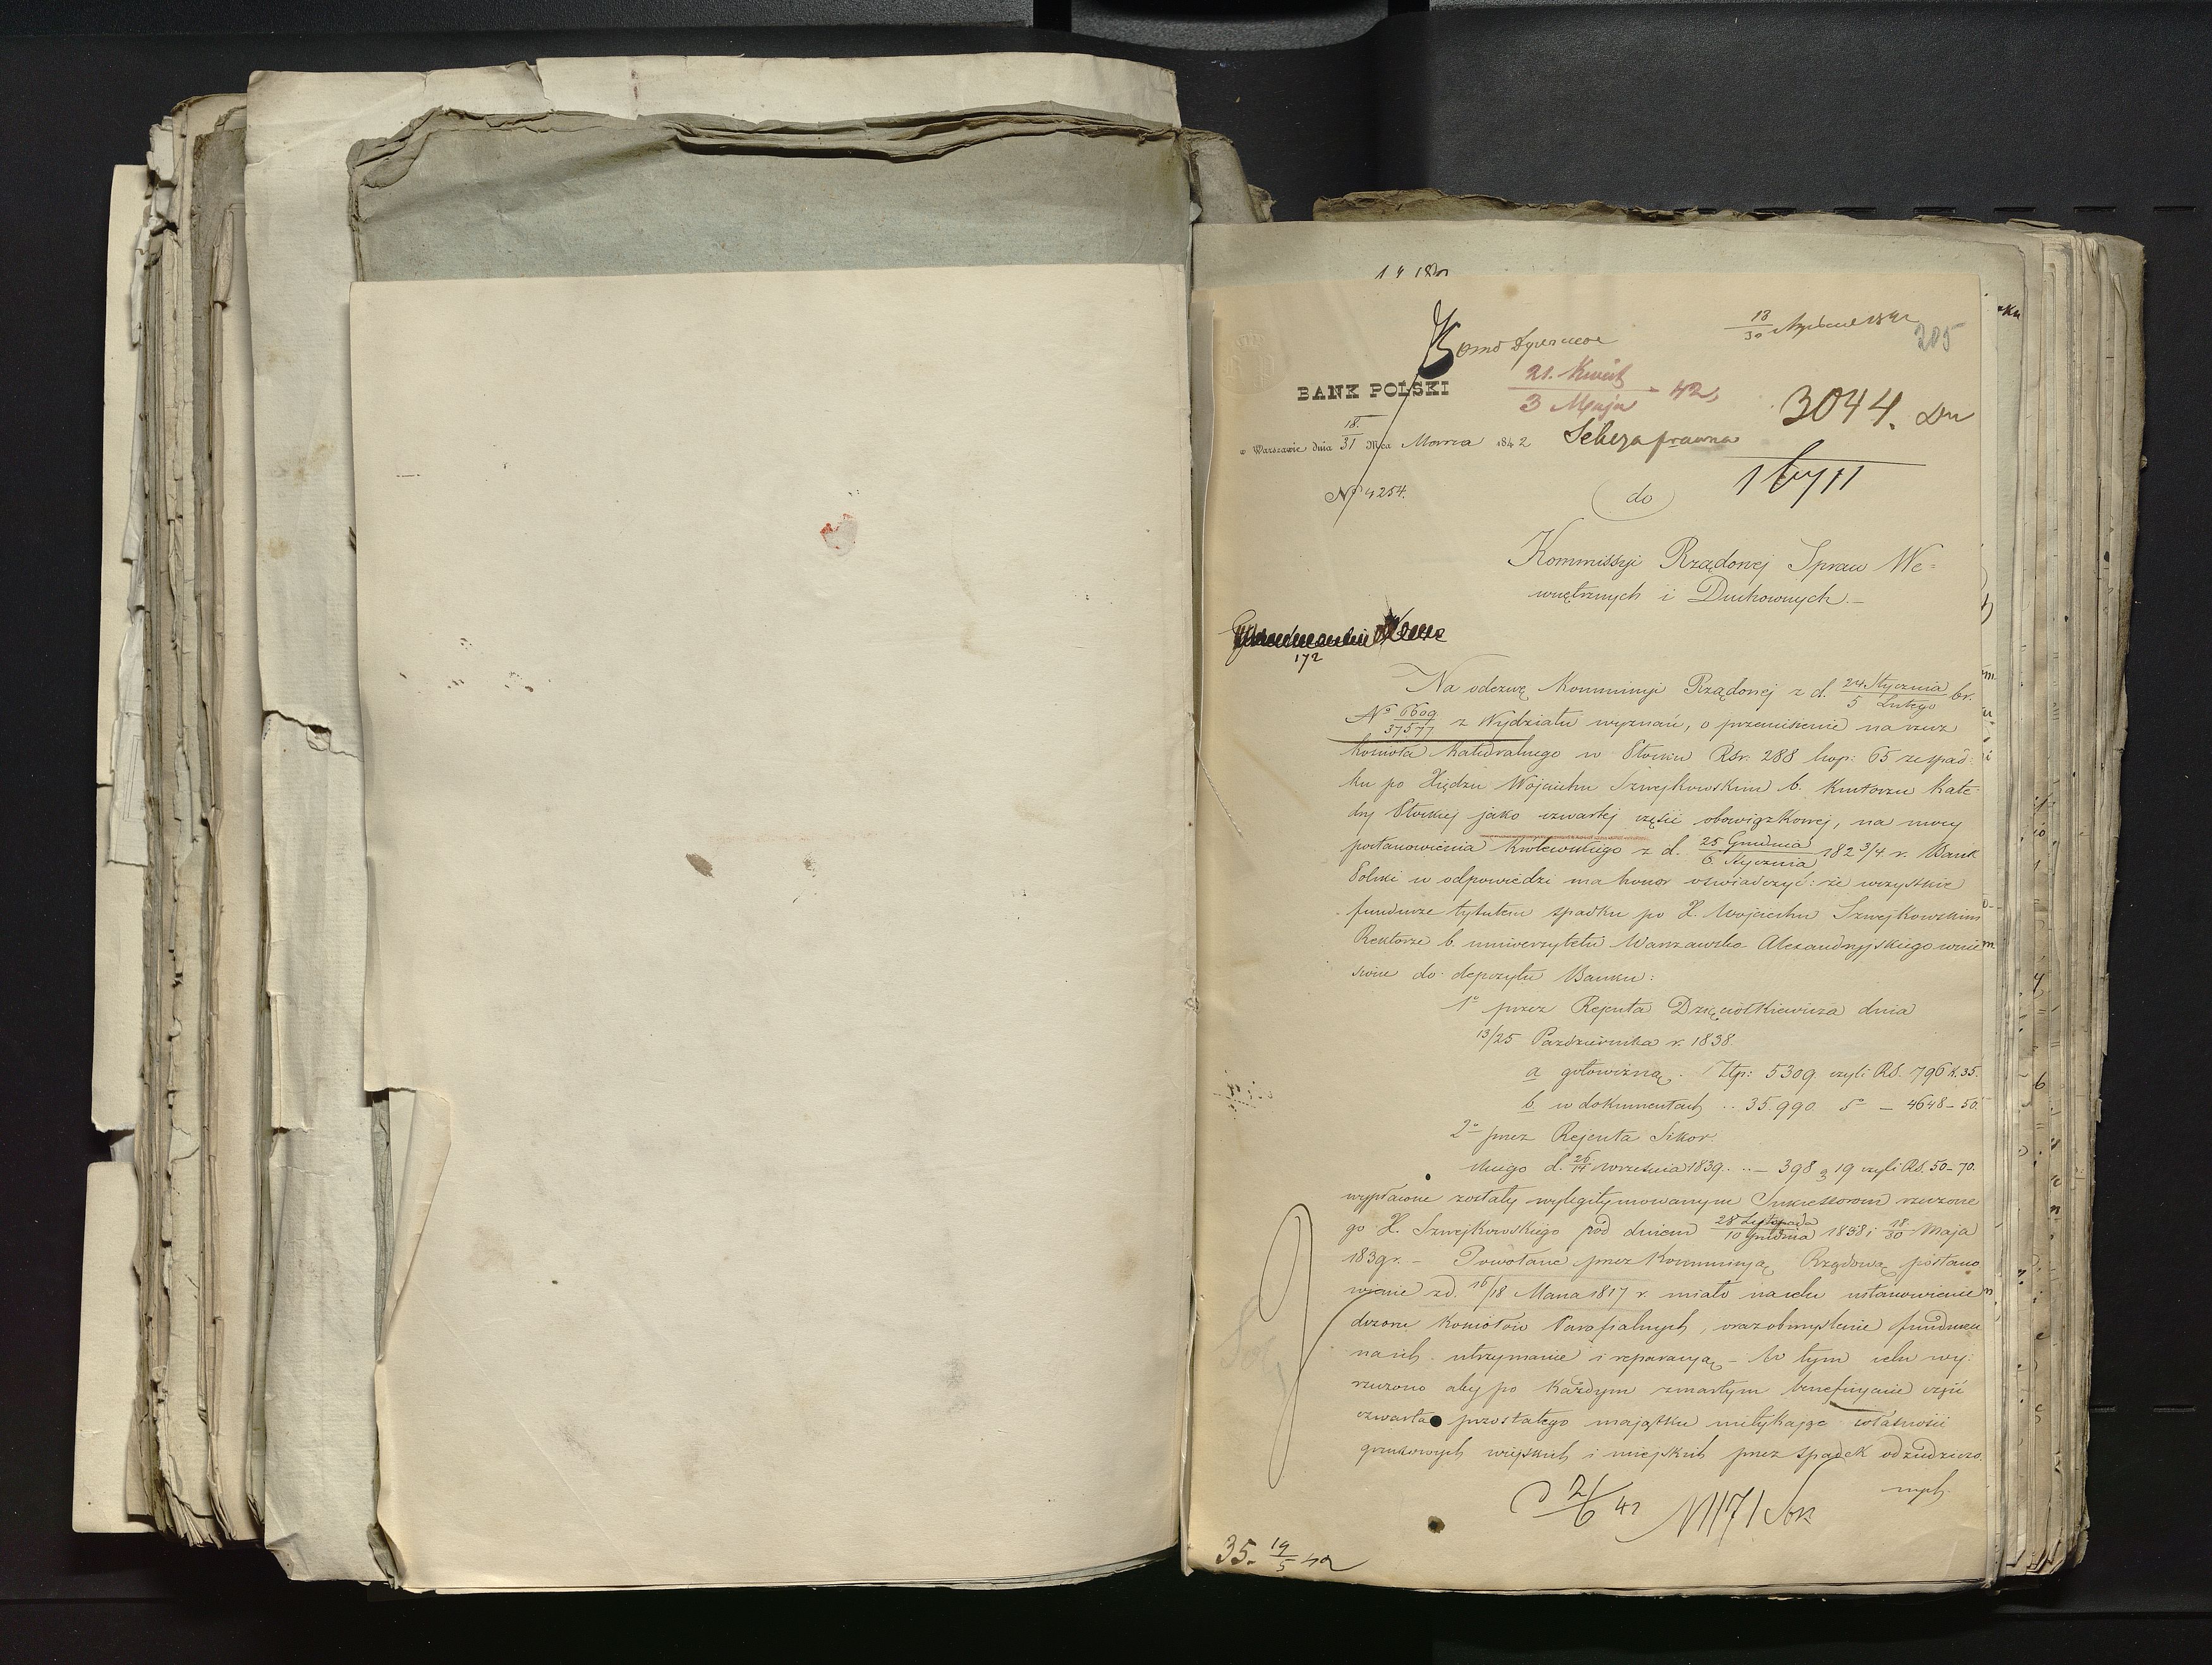 205
BANK POLSKI
21. Kwiet
3 Maja 42,
3044.
w Warszawie dnia 18/31 Mca Marca 1842
Sekcya prawna
№ 4254.
do
Kommissyi Rządowej Spraw We=
wnętrznych i Duchownych.—
172
Na odezwę Kommissyi Rządowej z d. 24 Stycznia / 5 Lutego br.
№ 6609/37577 z Wydziału wyznań, o przeniesienie na rzecz
kościoła Katedralnego w Płocku Rsr. 288 kop: 65 ze spad=
ku po Xiędzu Wojciechu Szwejkowskim b. Kustoszu Kate=
dry Płockiej jako czwartej części obowiązkowej, na mocy
postanowienia Królewskiego z d. 25 Grudnia / 6 Stycznia 182 3/4 r. Bank
Polski w odpowiedzi ma honor oświadczyć: że wszystkie
fundusze tytułem spadku po X. Wojciechu Szwejkowskim
Rektorze b. uniwerzytetu Warszawsko-Alexandryjskiego wnie
sione do depozytu Banku:
1º przez Rejenta Dzięciołkiewicza dnia
13/25 Października r. 1838.
a gotowizną. Złp: 5309 czyli RS. 796 k. 35.
b w dokumentach .. 35.990 5º — 4648-50.
2º przez Rejenta Sikor
skiego d. 26/14 września 1839. .. — 398 3 19 czyli RS. 50-70.
wypłacone zostały wylegitymowanym Sukcessorom rzeczone
go X. Szwejkowskiego pod dniem 28 Listopada / 10 Grudnia 1838 i 18/30 Maja
1839 r. — Powołane przez Kommissyą Rządową postano
wienie z d. 16/18 Marca 1817 r. miało na celu ustanowienie
dozoru Kościołów Parafialnych, oraz obmyślenie funduszu
na ich utrzymanie i reparacyą — W tym celu wy=
rzeczono aby po każdym zmarłym beneficyancie część
czwarta pozostałego majątku nietykając własności
gruntowych wiejskich i miejskich przez spadek odziedziczo
nych
2/6 42
35. 19/5 42